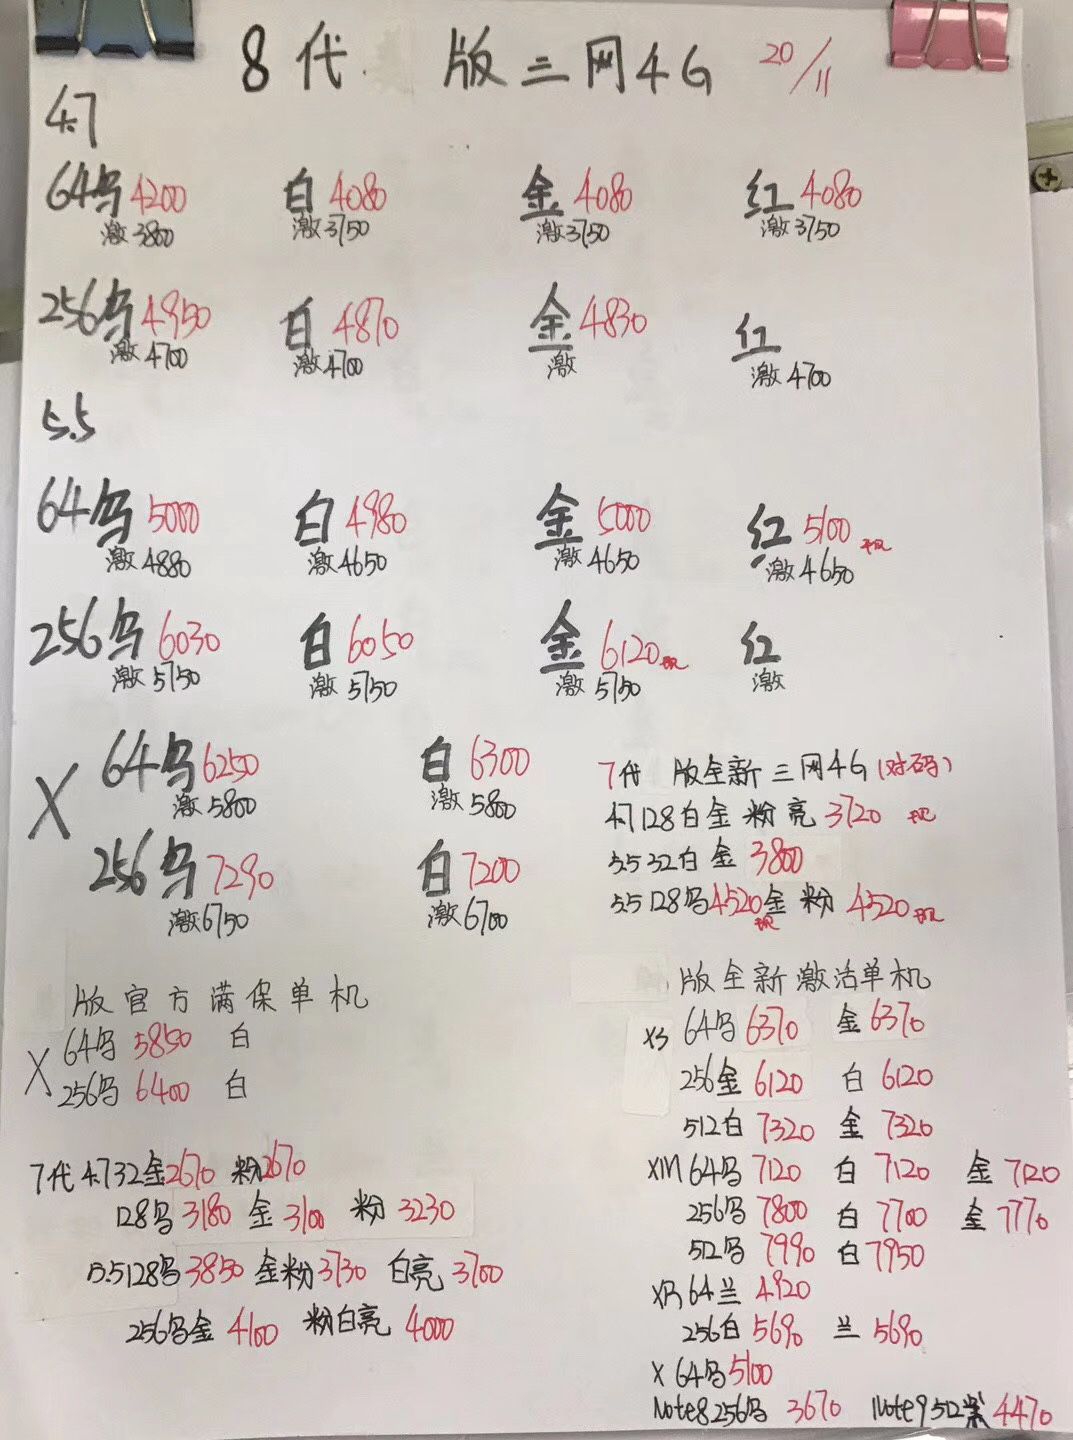 8代 版三网4G 20/11
4.7
64乌4200 白4080 金4080 红4080
激3800 激3750 激3750 激3750
256乌4950 白4870 金4830 红
激4700 激4700 激 激4700
5.5
64乌5000 白4980 金5000 红5100
激4880 激4650 激4650 激4650
256乌6030 白6050 金6120 红
激5750 激5750 激5750 激
X 64乌6250 白6300
激5800 激5800
256乌7290 白7200
激6750 激6700
7代 版全新三网4G(对码)
4.7 128白金粉亮3720
5.5 32白金3800
5.5 128乌4520金粉4520
版官方满保单机
X 64乌5850 白
256乌6400 白
7代4.732金2670 粉2670
128乌3180 金3100 粉3230
5.5128乌3850 金粉3730 白亮3700
256乌金4100 粉白亮4000
版全新激活单机
XS 64乌6370 金6370
256金6120 白6120
512白7320 金7320
XM 64乌7120 白7120 金7120
256乌7800 白7700 金7770
512乌7990 白7950
XR 64兰4920
256白5690 兰5690
X 64乌5100
Note8256乌3670 Note9512紫4470